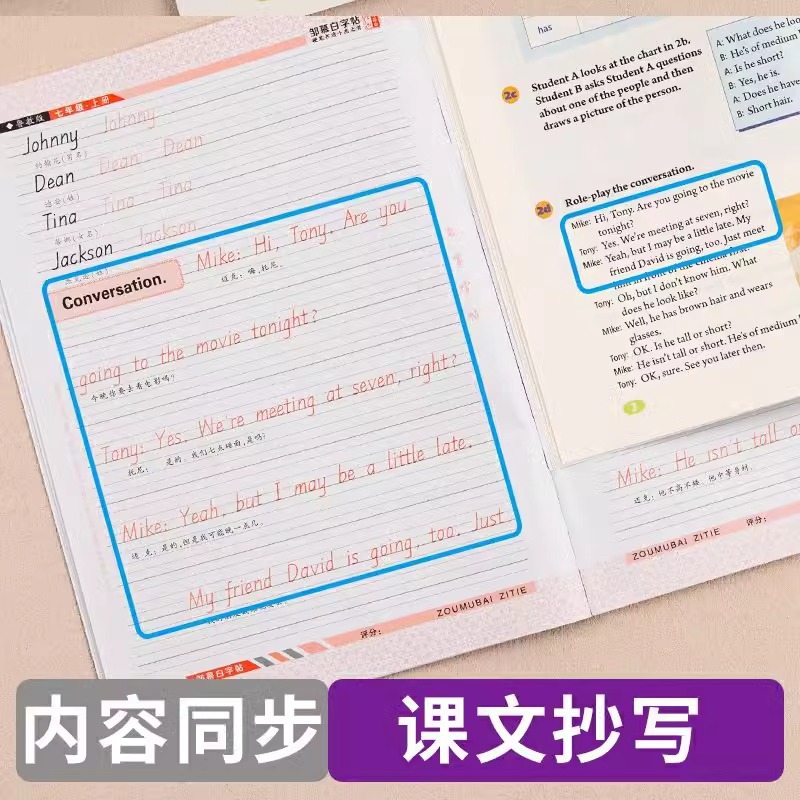 邹慕白字帖
鲁教版 七年级·上册
Johnny Johnny
Dean Dean Dean
Tina Tina Tina
Jackson Jackson
Conversation.
Mike: Hi, Tony. Are you
迈克：嗨，托尼。
going to the movie tonight?
今晚你要去看电影吗？
Tony: Yes. We're meeting at seven, right?
托尼：是的。我们七点碰面，是吗？
Mike: Yeah, but I may be a little late.
迈克：是的，但是我可能晚一点儿。
My friend David is going, too. Just
评分：
ZOUMUBAI ZITIE
邹慕白字帖
has
2c
Student A looks at the chart in 2b.
Student B asks Student A questions
about one of the people and then
draws a picture of the person.
A: What does he loo
B: He's of medium
A: Is he short?
B: Yes, he is.
A: Does he have
B: Short hair.
2d
Role-play the conversation.
Mike: Hi, Tony. Are you going to the movie
tonight?
Tony: Yes. We're meeting at seven, right?
Mike: Yeah, but I may be a little late. My
friend David is going, too. Just meet
Tony: Oh, but I don't know him. What
does he look like?
Mike: Well, he has brown hair and wears
glasses.
Tony: OK. Is he tall or short?
Mike: He isn't tall or short. He's of medium
Tony: OK, sure. See you later then.
2
Mike: He isn't tall o
迈克：他不高不矮，他中等身材。
ZOUMUBAI ZITIE
评分：
内容同步
课文抄写